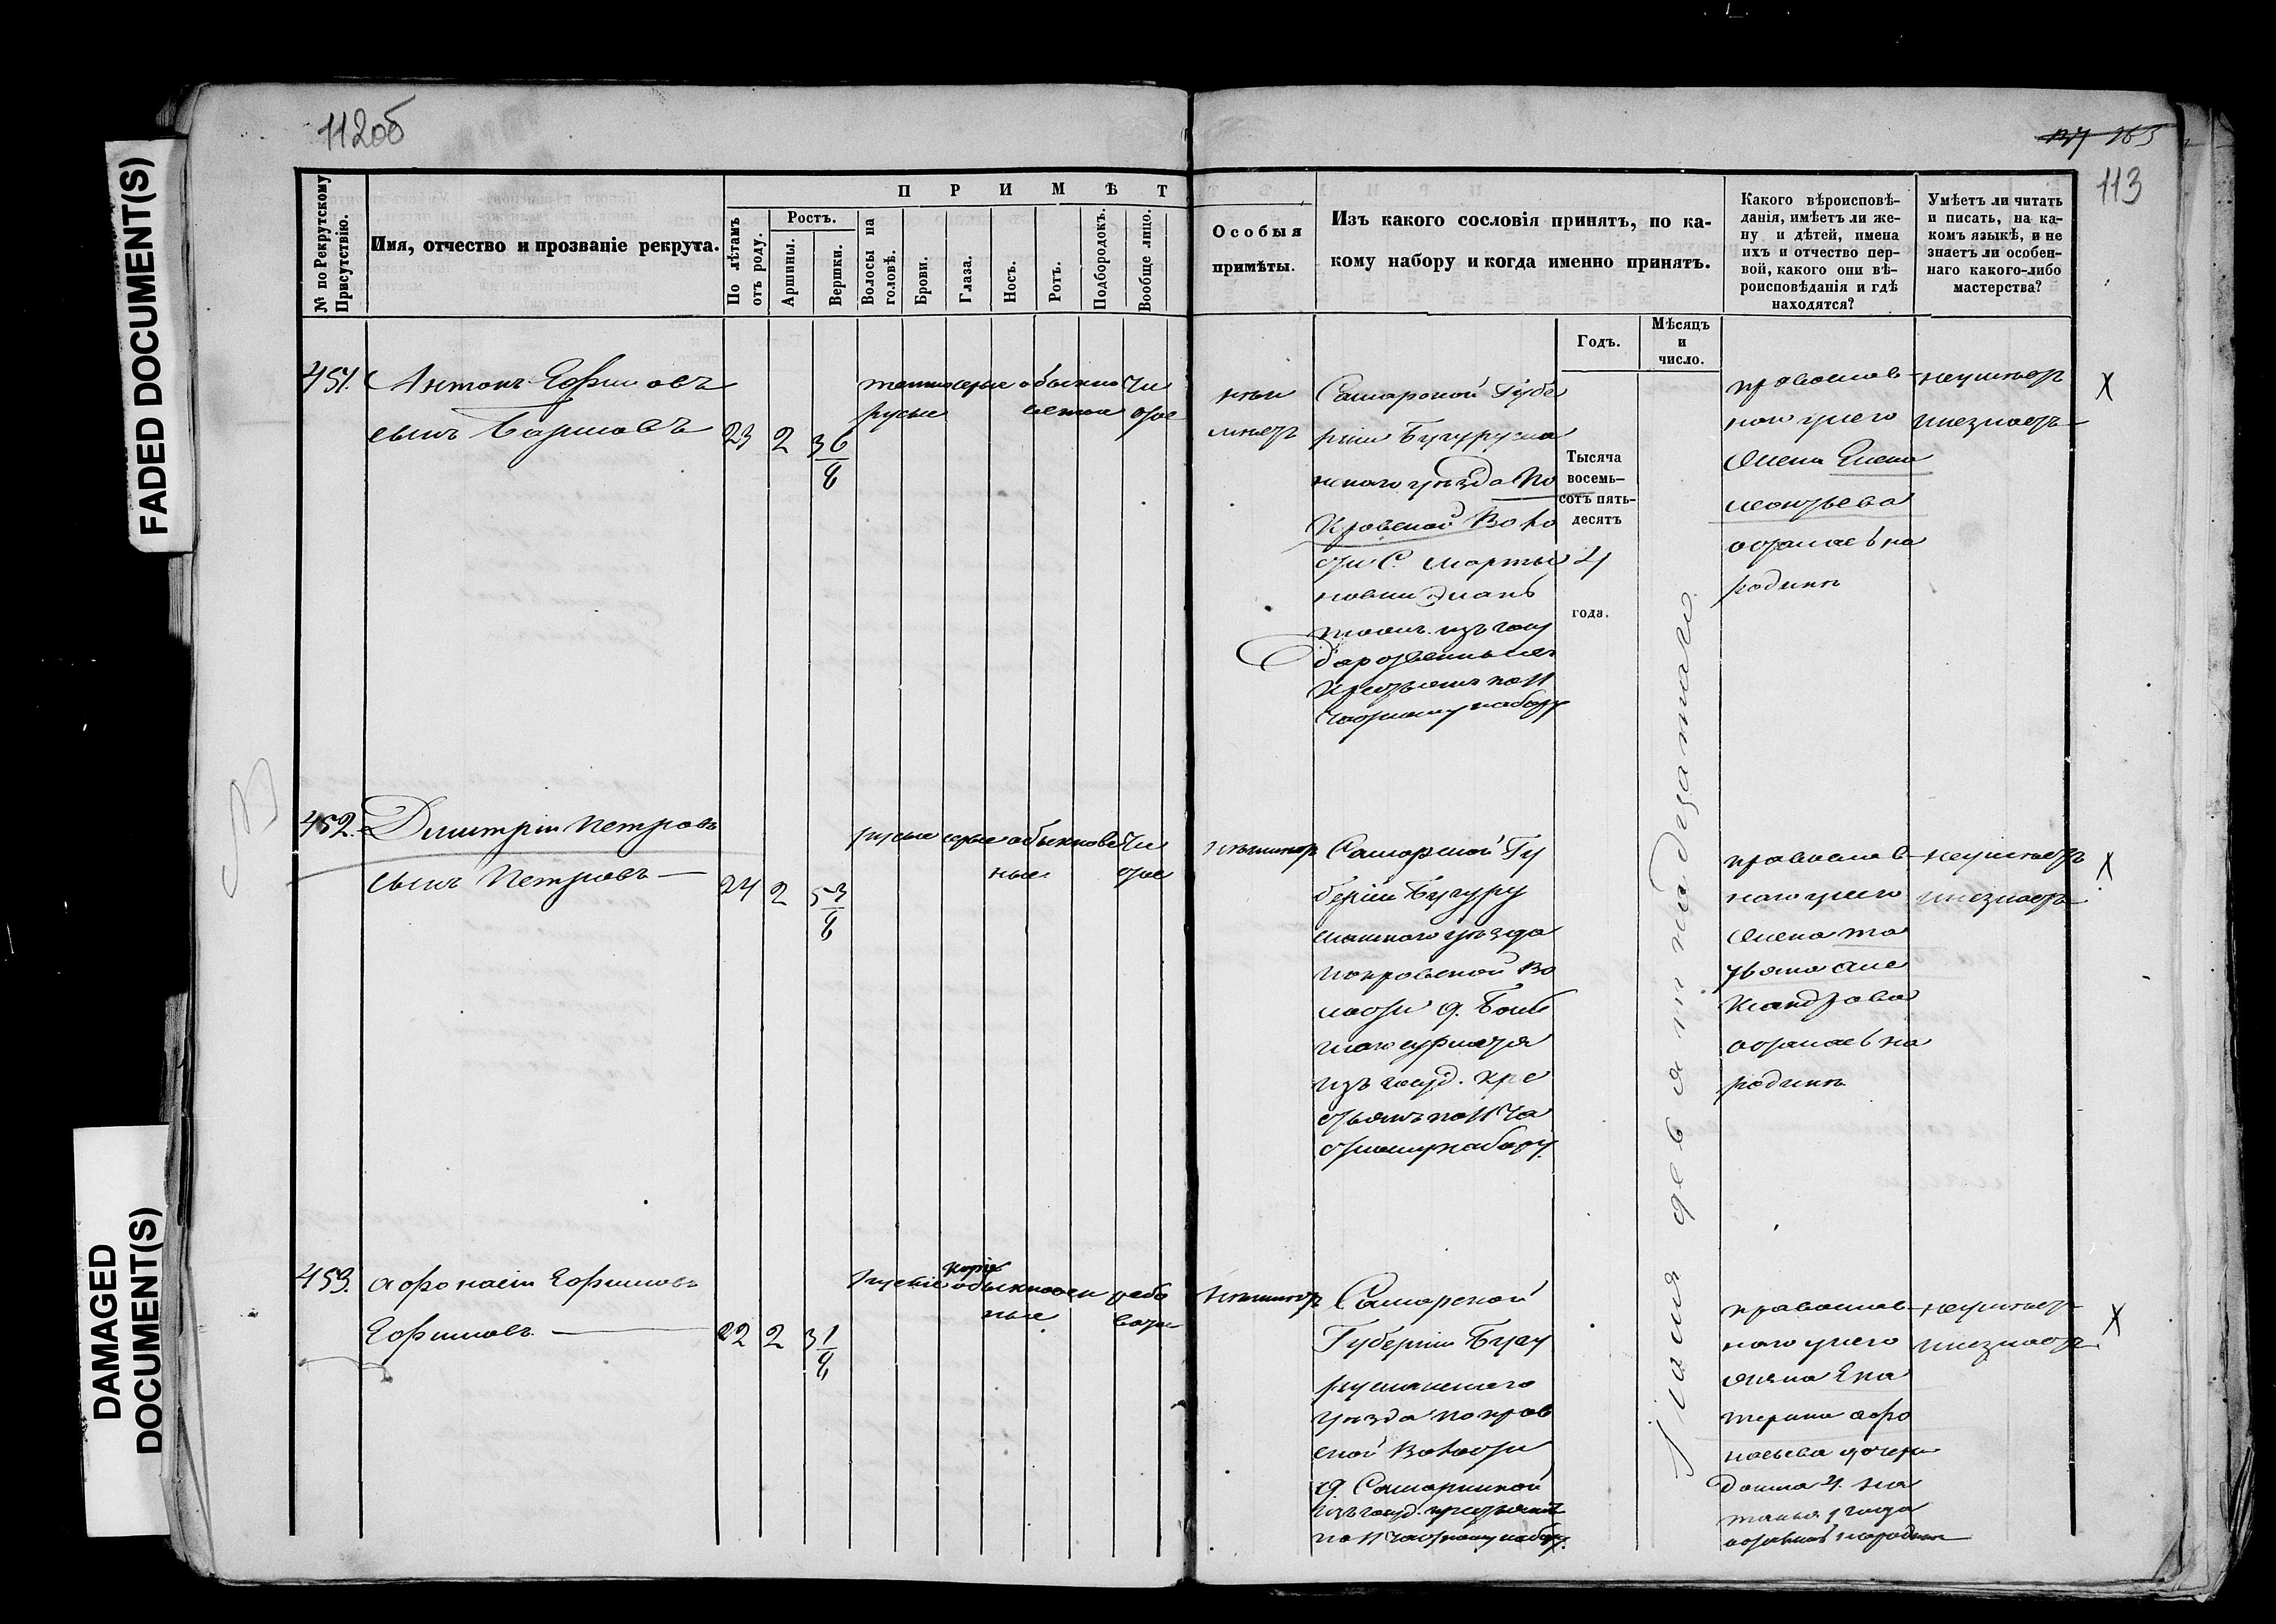 FADED DOCUMENT(S)
DAMAGED DOCUMENT(S)
112об
163
113
№ по Рекрутскому Присутствію.
Имя, отчество и прозваніе рекрута.
ПРИМѢТ
По лѣтамъ отъ роду.
Ростъ.
Аршины.
Вершки.
Волосы на головѣ.
Брови.
Глаза.
Носъ.
Ротъ.
Подбородокъ.
Вообще лицо.
Особыя
примѣты.
Изъ какого сословія принятъ, по ка-
кому набору и когда именно принятъ.
Годъ.
Мѣсяцъ
и
число.
Какого вѣроисповѣ-
данія, имѣетъ ли же-
ну и дѣтей, имена
ихъ и отчество пер-
вой, какого они вѣ-
роисповѣданія и гдѣ
находятся?
Умѣетъ ли читать
и писать, на ка-
комъ языкѣ, и не
знаетъ ли особен-
наго какого-либо
мастерства?
451. Антонъ Ефимовъ
сынъ
23 2 3 6/8
темно серые обыкно чи
русые венные стое
неи
меетъ
Самарской Губе
рніи Бугурусла
нскаго уѣзда По
кровской Воло
сти С. Марты
новки
изъ госу
дарственныхъ
крестьянъ по 11
частному набору
Тысяча
восемь-
сотъ пять-
десятъ
4
года.
Іюля девятнадцатаго
православ
наго у него
жена Елена
Леонтьева
осталась на
родинѣ
неумѣетъ
и незнаетъ
X
452. Дмитрій Петровъ
сынъ Петровъ —
24 2 5 3/8
русые серые обыкнове чи
нные стое
неимеетъ
Самарской Гу
берніи Бугуру
сланскаго уѣзда
Покровской Во
лости д.
изъ госуд. кре
стьянъ по 11 ча
стному набору.
православ
наго у него
жена Та
тьяна Але
ксандрова
осталась на
родинѣ
неумѣетъ
и незнаетъ
X
453. Афонасій Ефимовъ
Ефимовъ —
22 2 3 1/8
карие
русые обыкновен рябо
ные ватое
неимеетъ
Самарской
Губерніи Бугу
русланскаго
уѣзда Покров
ской Волости
д. Самаркиной
изъ госуд. крестьянъ
по 11 частному набору.
православ
наго у него
жена Ека
терина Афо
насьева дочери
Домна 4. На
талья 1 года
остались народинѣ
неумѣетъ
и незнаетъ
X